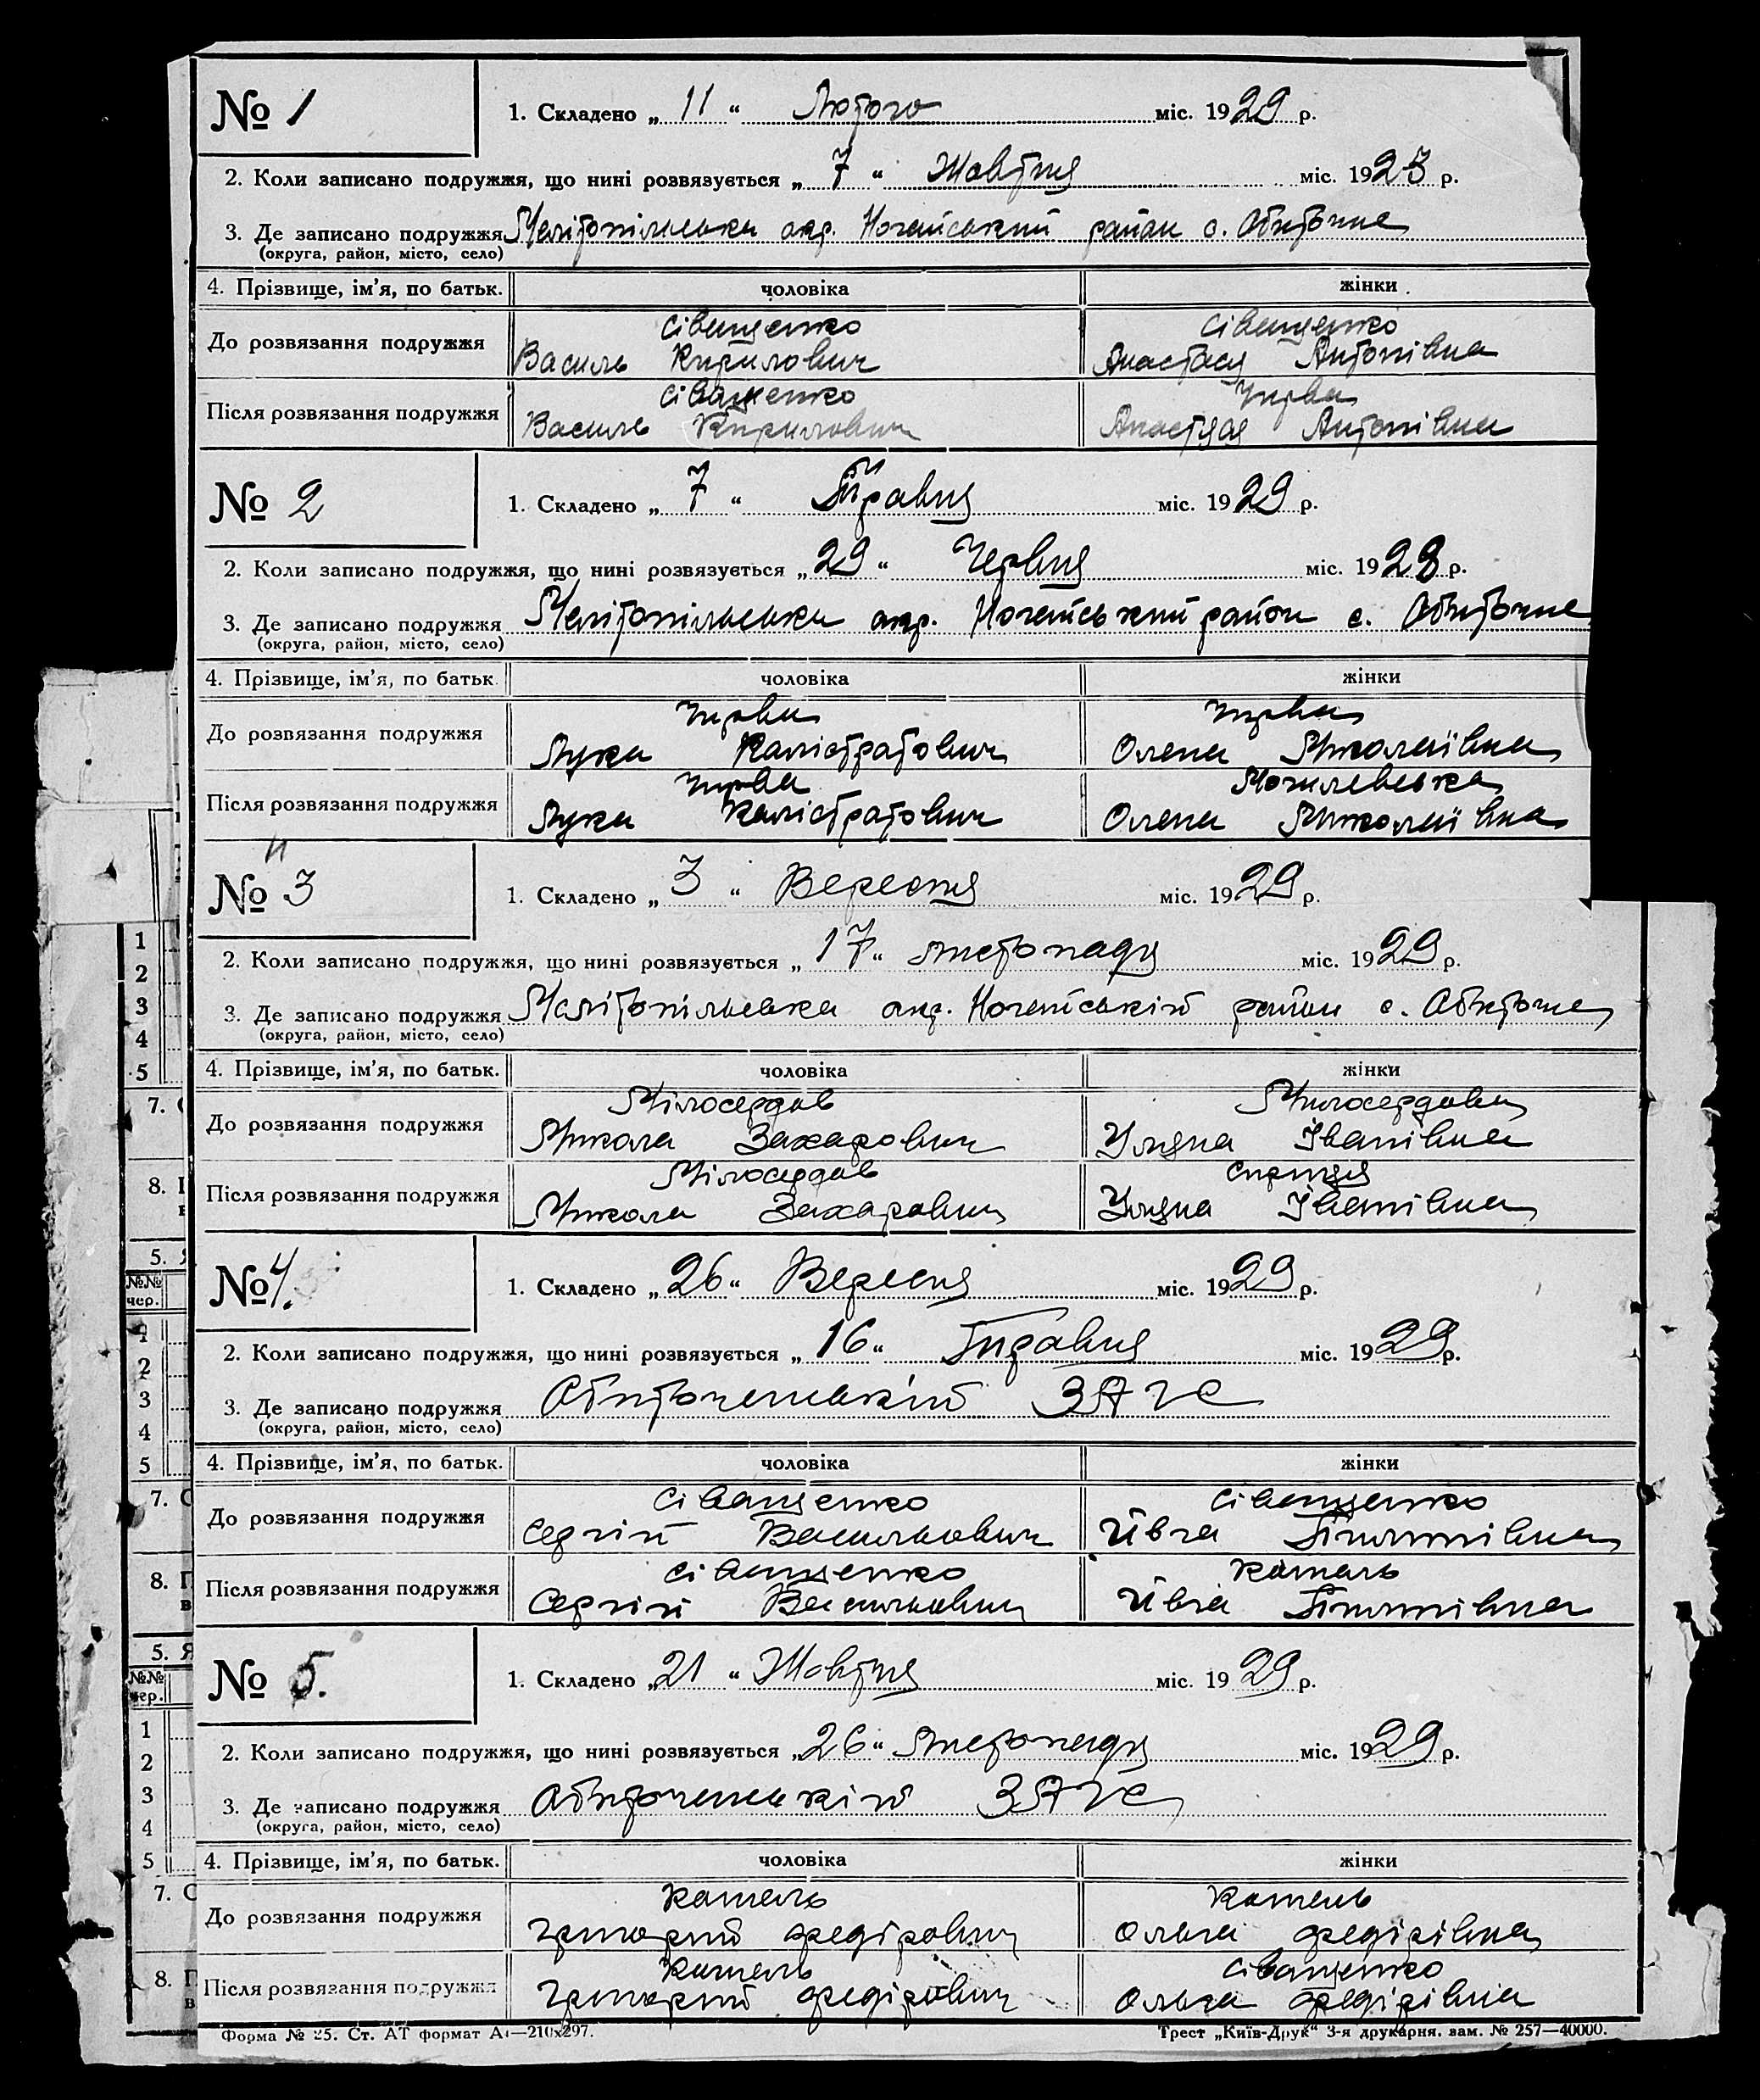 № 1
1. Складено „ 11 “ Лютого міс. 1929 р.
2. Коли записано подружжя, що нині розвязується „ 7 “ Жовтня міс. 1923 р.
3. Де записано подружжя Мелітопільська окр. Ногайський район с. Обиточне
(округа, район, місто, село)
4. Прізвище, ім’я, по батьк. чоловіка жінки
Сіващенко Сіващенко
До розвязання подружжя Василь Кирилович Анастасія Антонівна
Сіващенко
Після розвязання подружжя Василь Кирилович Антонівна
№ 2
1. Складено „ 7 “ Травня міс. 1929 р.
2. Коли записано подружжя, що нині розвязується „ 29 “ Червня міс. 1928 р.
3. Де записано подружжя Мелітопільська окр. Ногайський район с. Обиточне
(округа, район, місто, село)
4. Прізвище, ім’я, по батьк. чоловіка жінки
До розвязання подружжя Лука Калістратович Олена Миколаївна
Могилевська
Після розвязання подружжя Лука Калістратович Олена Миколаївна
№ 3
1. Складено „ 3 “ Вересня міс. 1929 р.
2. Коли записано подружжя, що нині розвязується „ 17 “ листопаду міс. 1929 р.
3. Де записано подружжя Мелітопільська окр. Ногайській район с. Обиточне
(округа, район, місто, село)
4. Прізвище, ім’я, по батьк. чоловіка жінки
Мілосердов Милосердова
До розвязання подружжя Микола Захарович Уляна Іванівна
Мілосердов
Після розвязання подружжя Микола Захарович Уляна Іванівна
№ 4.
1. Складено „ 26 “ Вересня міс. 1929 р.
2. Коли записано подружжя, що нині розвязується „ 16 “ Травня міс. 1929 р.
3. Де записано подружжя Обиточенський ЗАГС
(округа, район, місто, село)
4. Прізвище, ім’я, по батьк. чоловіка жінки
Сіващенко Сіващенко
До розвязання подружжя Сергій Васильович Ївга Пилипівна
Сіващенко Кошель
Після розвязання подружжя Сергій Васильович Ївга Пилипівна
№ 5.
1. Складено „ 21 “ Жовтня міс. 1929 р.
2. Коли записано подружжя, що нині розвязується „ 26 “ Листопаду міс. 1929 р.
3. Де записано подружжя Обиточенській ЗАГС
(округа, район, місто, село)
4. Прізвище, ім’я, по батьк. чоловіка жінки
Кошель Кошель
До розвязання подружжя Григорий Федірович Ольга Федірівна
Кошель Сіващенко
Після розвязання подружжя Григорий Федірович Ольга Федірівна
Форма № 25. Ст. АТ формат А4—210х297. Трест „Київ-Друк“ 3-я друкарня. зам. № 257—40000.